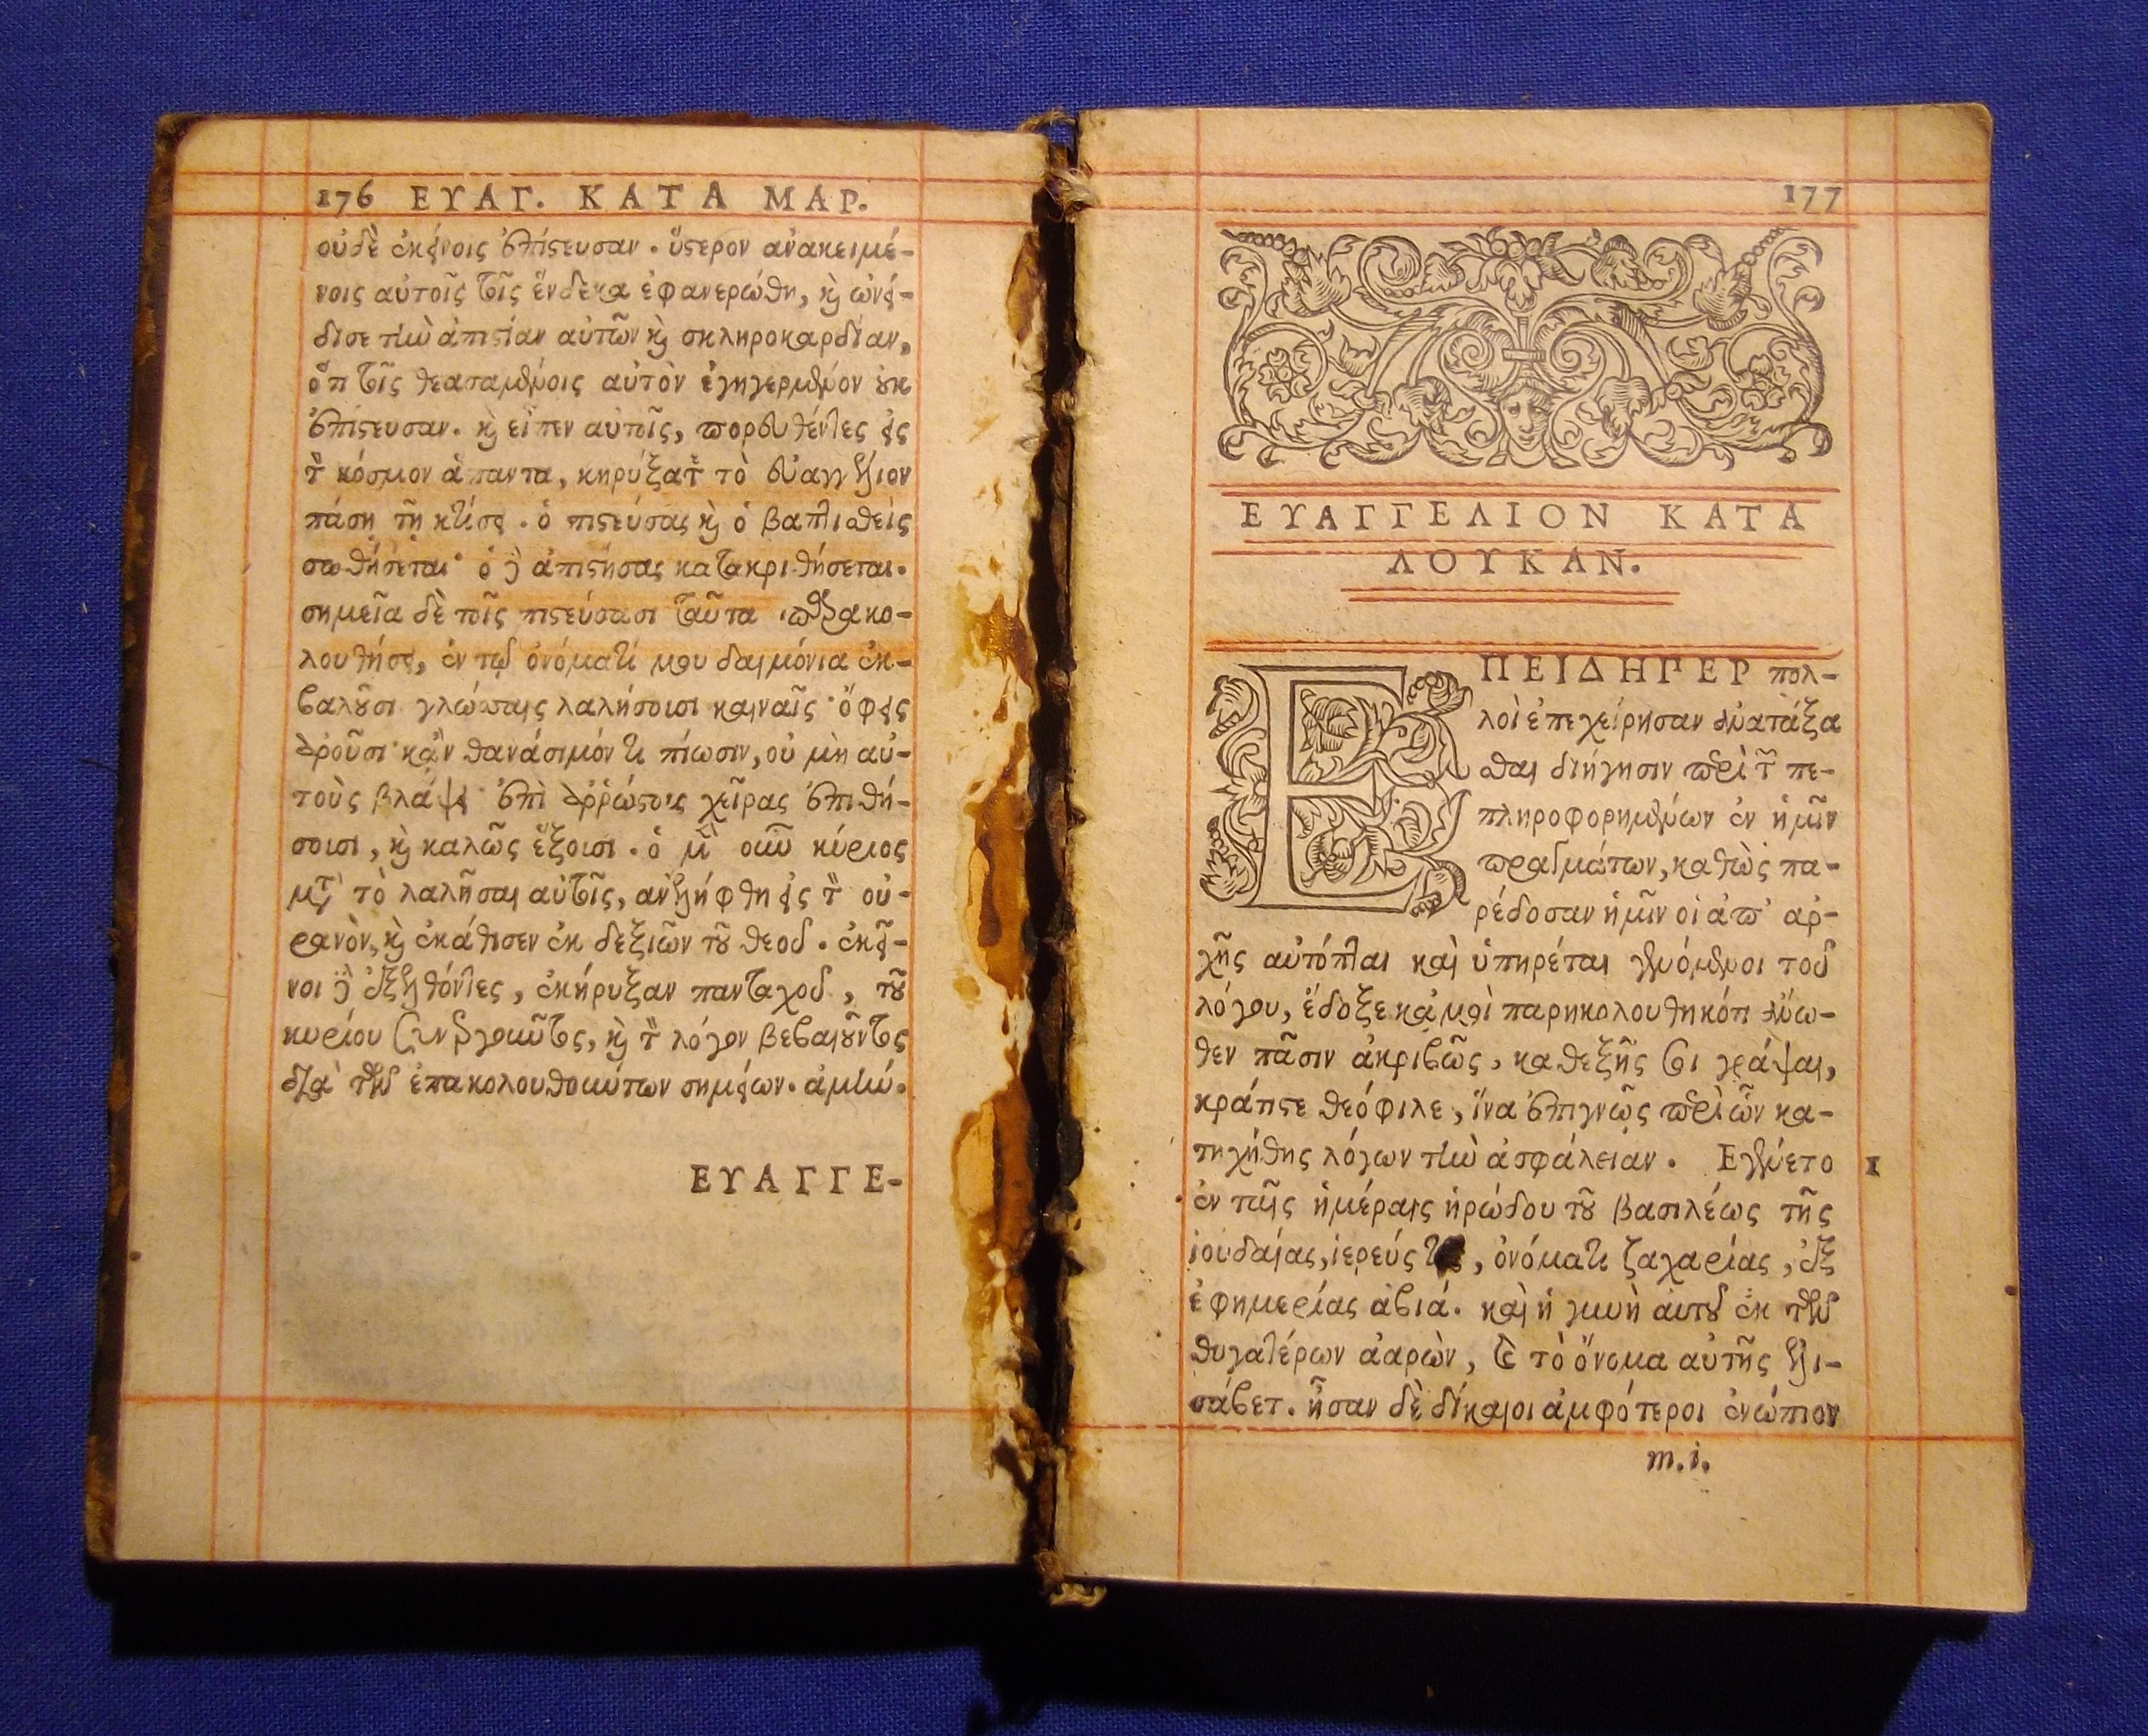 176 ΕΥΑΓ. ΚΑΤΑ ΜΑΡ.
οὐδὲ ἐκείνοις ἐπίςευσαν. ὕςερον ἀνακειμέ-
νοις αὐτοῖς τοῖς ἕνδεκα ἐφανερώθη, ϗ ὠνεί-
δισε τὴν ἀπιςίαν αὐτῶν ϗ σκληροκαρδίαν,
ὅτι τοῖς θεασαμένοις αὐτὸν ἐγηγερμένον οὐκ
ἐπίςευσαν. ϗ εἶπεν αὐτοῖς, πορευθέντες εἰς
τὸν κόσμον ἅπαντα, κηρύξατε τὸ εὐαγγέλιον
πάσῃ τῇ κτίσει. ὁ πιςεύσας ϗ ὁ βαπτισθεὶς
σωθήσεται· ὁ δὲ ἀπιςήσας κατακριθήσεται.
σημεῖα δὲ τοῖς πιςεύσασι ταῦτα παρακο-
λουθήσει, ἐν τῷ ὀνόματί μου δαιμόνια ἐκ-
βαλοῦσι γλώσσαις λαλήσουσι καιναῖς· ὄφεις
ἀροῦσι· κἂν θανάσιμόν τι πίωσιν, οὐ μὴ αὐ-
τοὺς βλάψει· ἐπὶ ἀῤῥώςους χεῖρας ἐπιθή-
σουσι, ϗ καλῶς ἕξουσι. ὁ μὲν οὖν κύριος
μετὰ τὸ λαλῆσαι αὐτοῖς, ἀνελήφθη εἰς τὸν οὐ-
ρανὸν, ϗ ἐκάθισεν ἐκ δεξιῶν τοῦ θεοῦ. ἐκεῖ-
νοι δὲ ἐξελθόντες, ἐκήρυξαν πανταχοῦ, τοῦ
κυρίου συνεργοῦντος, ϗ τὸν λόγον βεβαιοῦντος
διὰ τῶν ἐπακολουθούντων σημείων. ἀμήν.
ΕΥΑΓΓΕ-
177
ΕΥΑΓΓΕΛΙΟΝ ΚΑΤΑ
ΛΟΥΚΑΝ.
ΕΠΕΙΔΗΠΕΡ πολ-
λοὶ ἐπεχείρησαν ἀνατάξα
σθαι διήγησιν περὶ τῶν πε-
πληροφορημένων ἐν ἡμῖν
πραγμάτων, καθὼς πα-
ρέδοσαν ἡμῖν οἱ ἀπ' ἀρ-
χῆς αὐτόπται καὶ ὑπηρέται γενόμενοι τοῦ
λόγου, ἔδοξε κἀμοὶ παρηκολουθηκότι ἄνω-
θεν πᾶσιν ἀκριβῶς, καθεξῆς σοι γράψαι,
κράτιςε θεόφιλε, ἵνα ἐπιγνῷς περὶ ὧν κα-
τηχήθης λόγων τὴν ἀσφάλειαν. Εγένετο 1
ἐν ταῖς ἡμέραις ἡρώδου τοῦ βασιλέως τῆς
ἰουδαίας, ἱερεύς, ὀνόματι ζαχαρίας, ἐξ
ἐφημερίας ἀβιά. καὶ ἡ γυνὴ αὐτοῦ ἐκ τῶν
θυγατέρων ἀαρὼν, ϗ τὸ ὄνομα αὐτῆς ἐλι-
σάβετ. ἦσαν δὲ δίκαιοι ἀμφότεροι ἐνώπιον
m.i.